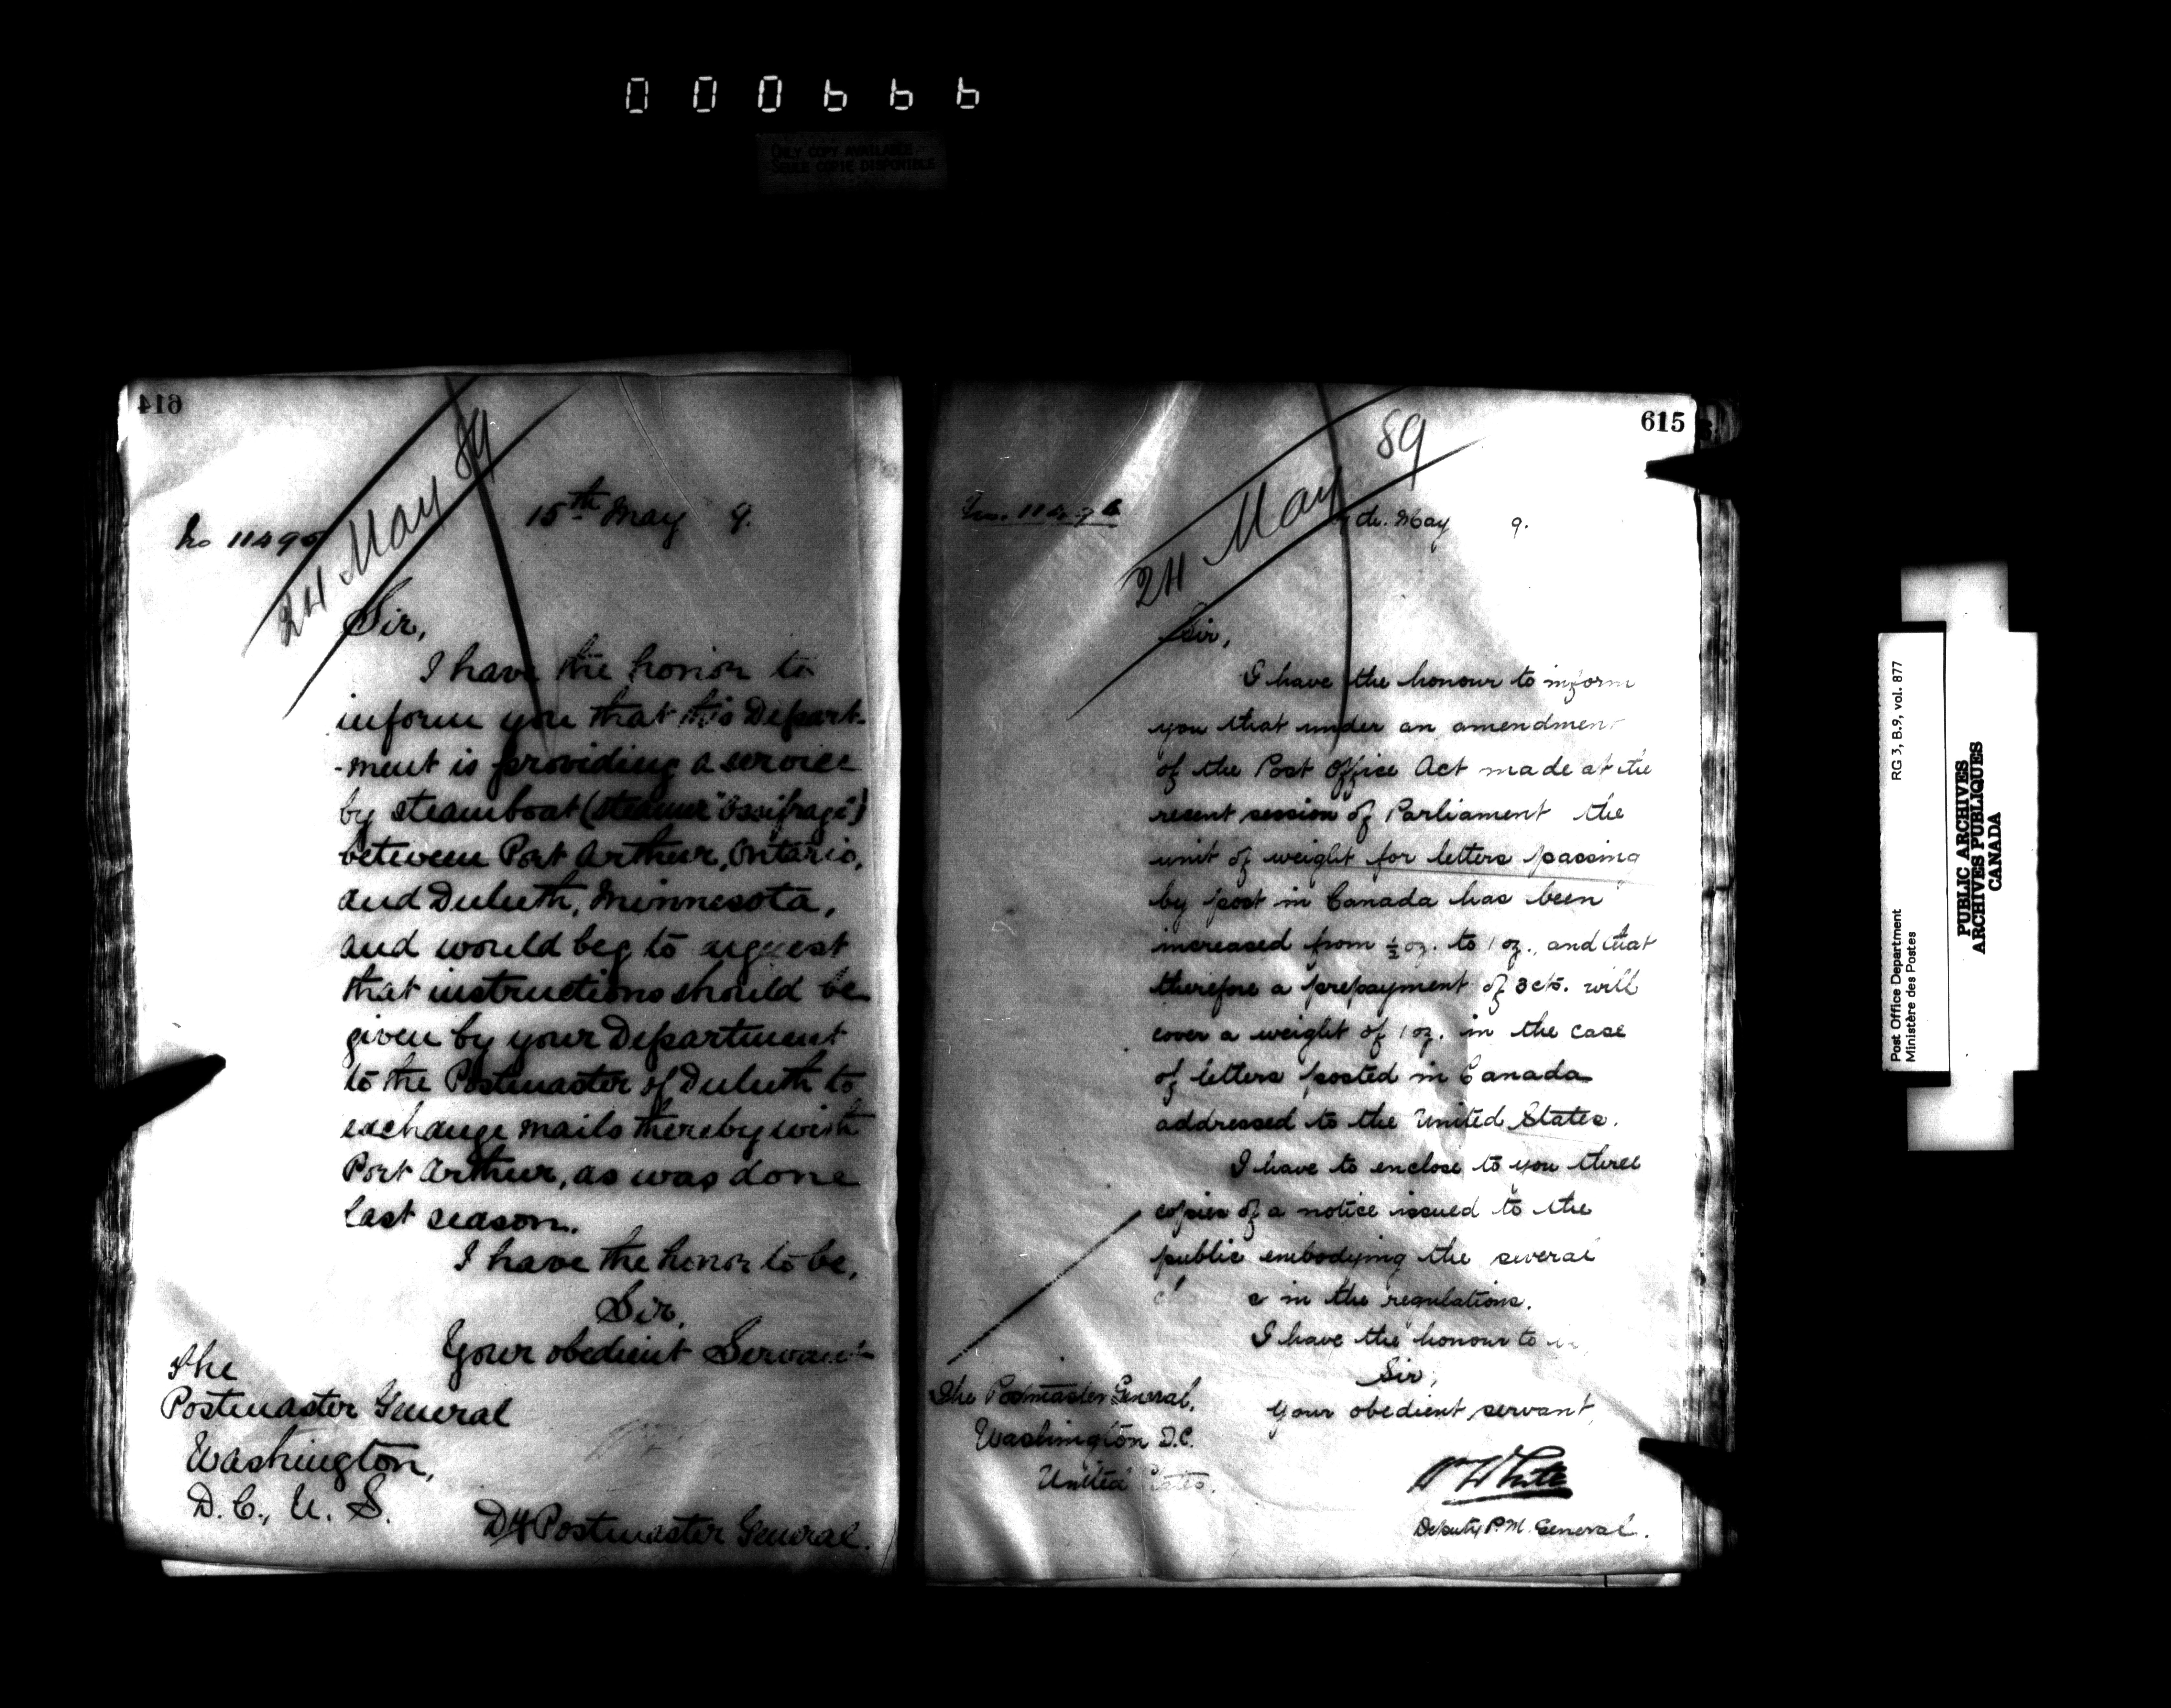 000666
ONLY COPY AVAILABLE
SEULE COPIE DISPONIBLE
614
24 May 89
No 11495
15th May 9.
Sir,
I have the honor to
inform you that this Depart-
-ment is providing a service
by steamboat (steamer "Ossifrage")
between Port Arthur, Ontario,
and Duluth, Minnesota,
and would beg to request
that instructions should be
given by your Department
to the Postmaster of Duluth to
exchange mails thereby with
Port Arthur, as was done
last season.
I have the honor to be,
Sir,
Your obedient Servant
The
Postmaster General
Washington,
D. C., U. S.
Dy Postmaster General.
615
24 May 89
May 9.
Sir,
I have the honour to inform
you that under an amendment
of the Post Office Act made at the
recent session of Parliament the
unit of weight for letters passing
by post in Canada has been
increased from ½ oz. to 1 oz., and that
therefore a prepayment of 3 cts. will
cover a weight of 1 oz. in the case
of letters posted in Canada
addressed to the United States.
I have to enclose to you three
copies of a notice issued to the
public embodying the several
in the regulations.
I have the honour to
Sir,
Your obedient servant,
The Postmaster General,
Washington D.C.
United States.
Wm White
Deputy P. M. General.
Post Office Department RG 3, B.9, vol. 877
Ministère des Postes
PUBLIC ARCHIVES
ARCHIVES PUBLIQUES
CANADA